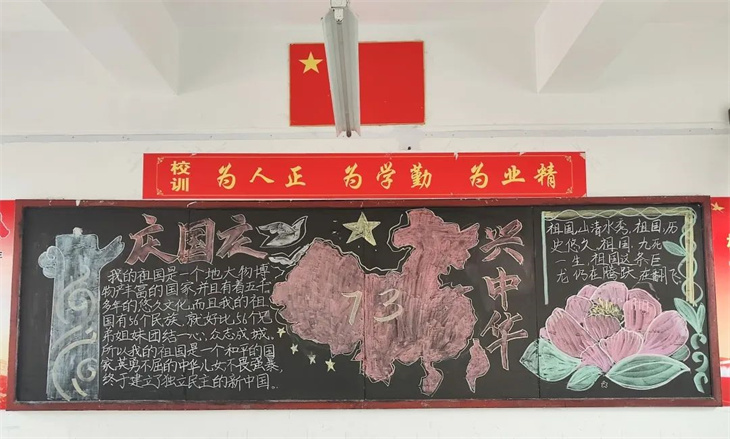 校训
为人正 为学勤 为业精
庆国庆
我的祖国是一个地大物博
物产丰富的国家,并且有着五千
多年的悠久文化,而且我的祖
国有56个民族,就好比56个兄
弟姐妹团结一心,众志成城。
所以我的祖国是一个和平的国
家,英勇不屈的中华儿女不畏强暴,
终于建立了独立民主的新中国。
73
兴中华
祖国,山清水秀,祖国,历
史悠久,祖国,九死
一生,祖国这条巨
龙仍在腾跃,在翻飞